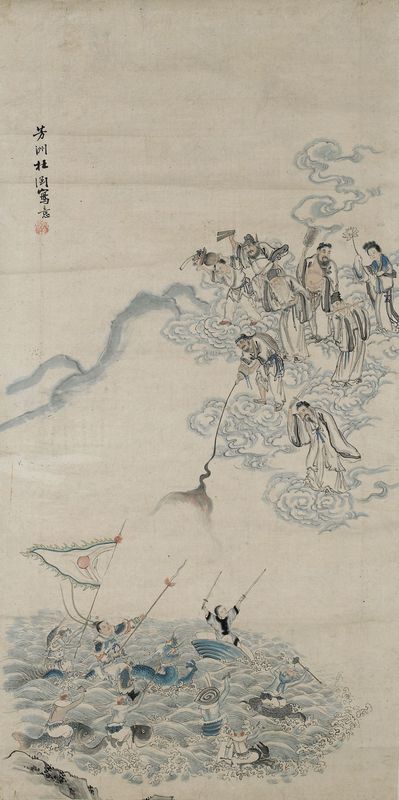 芳洲杜溷寫意